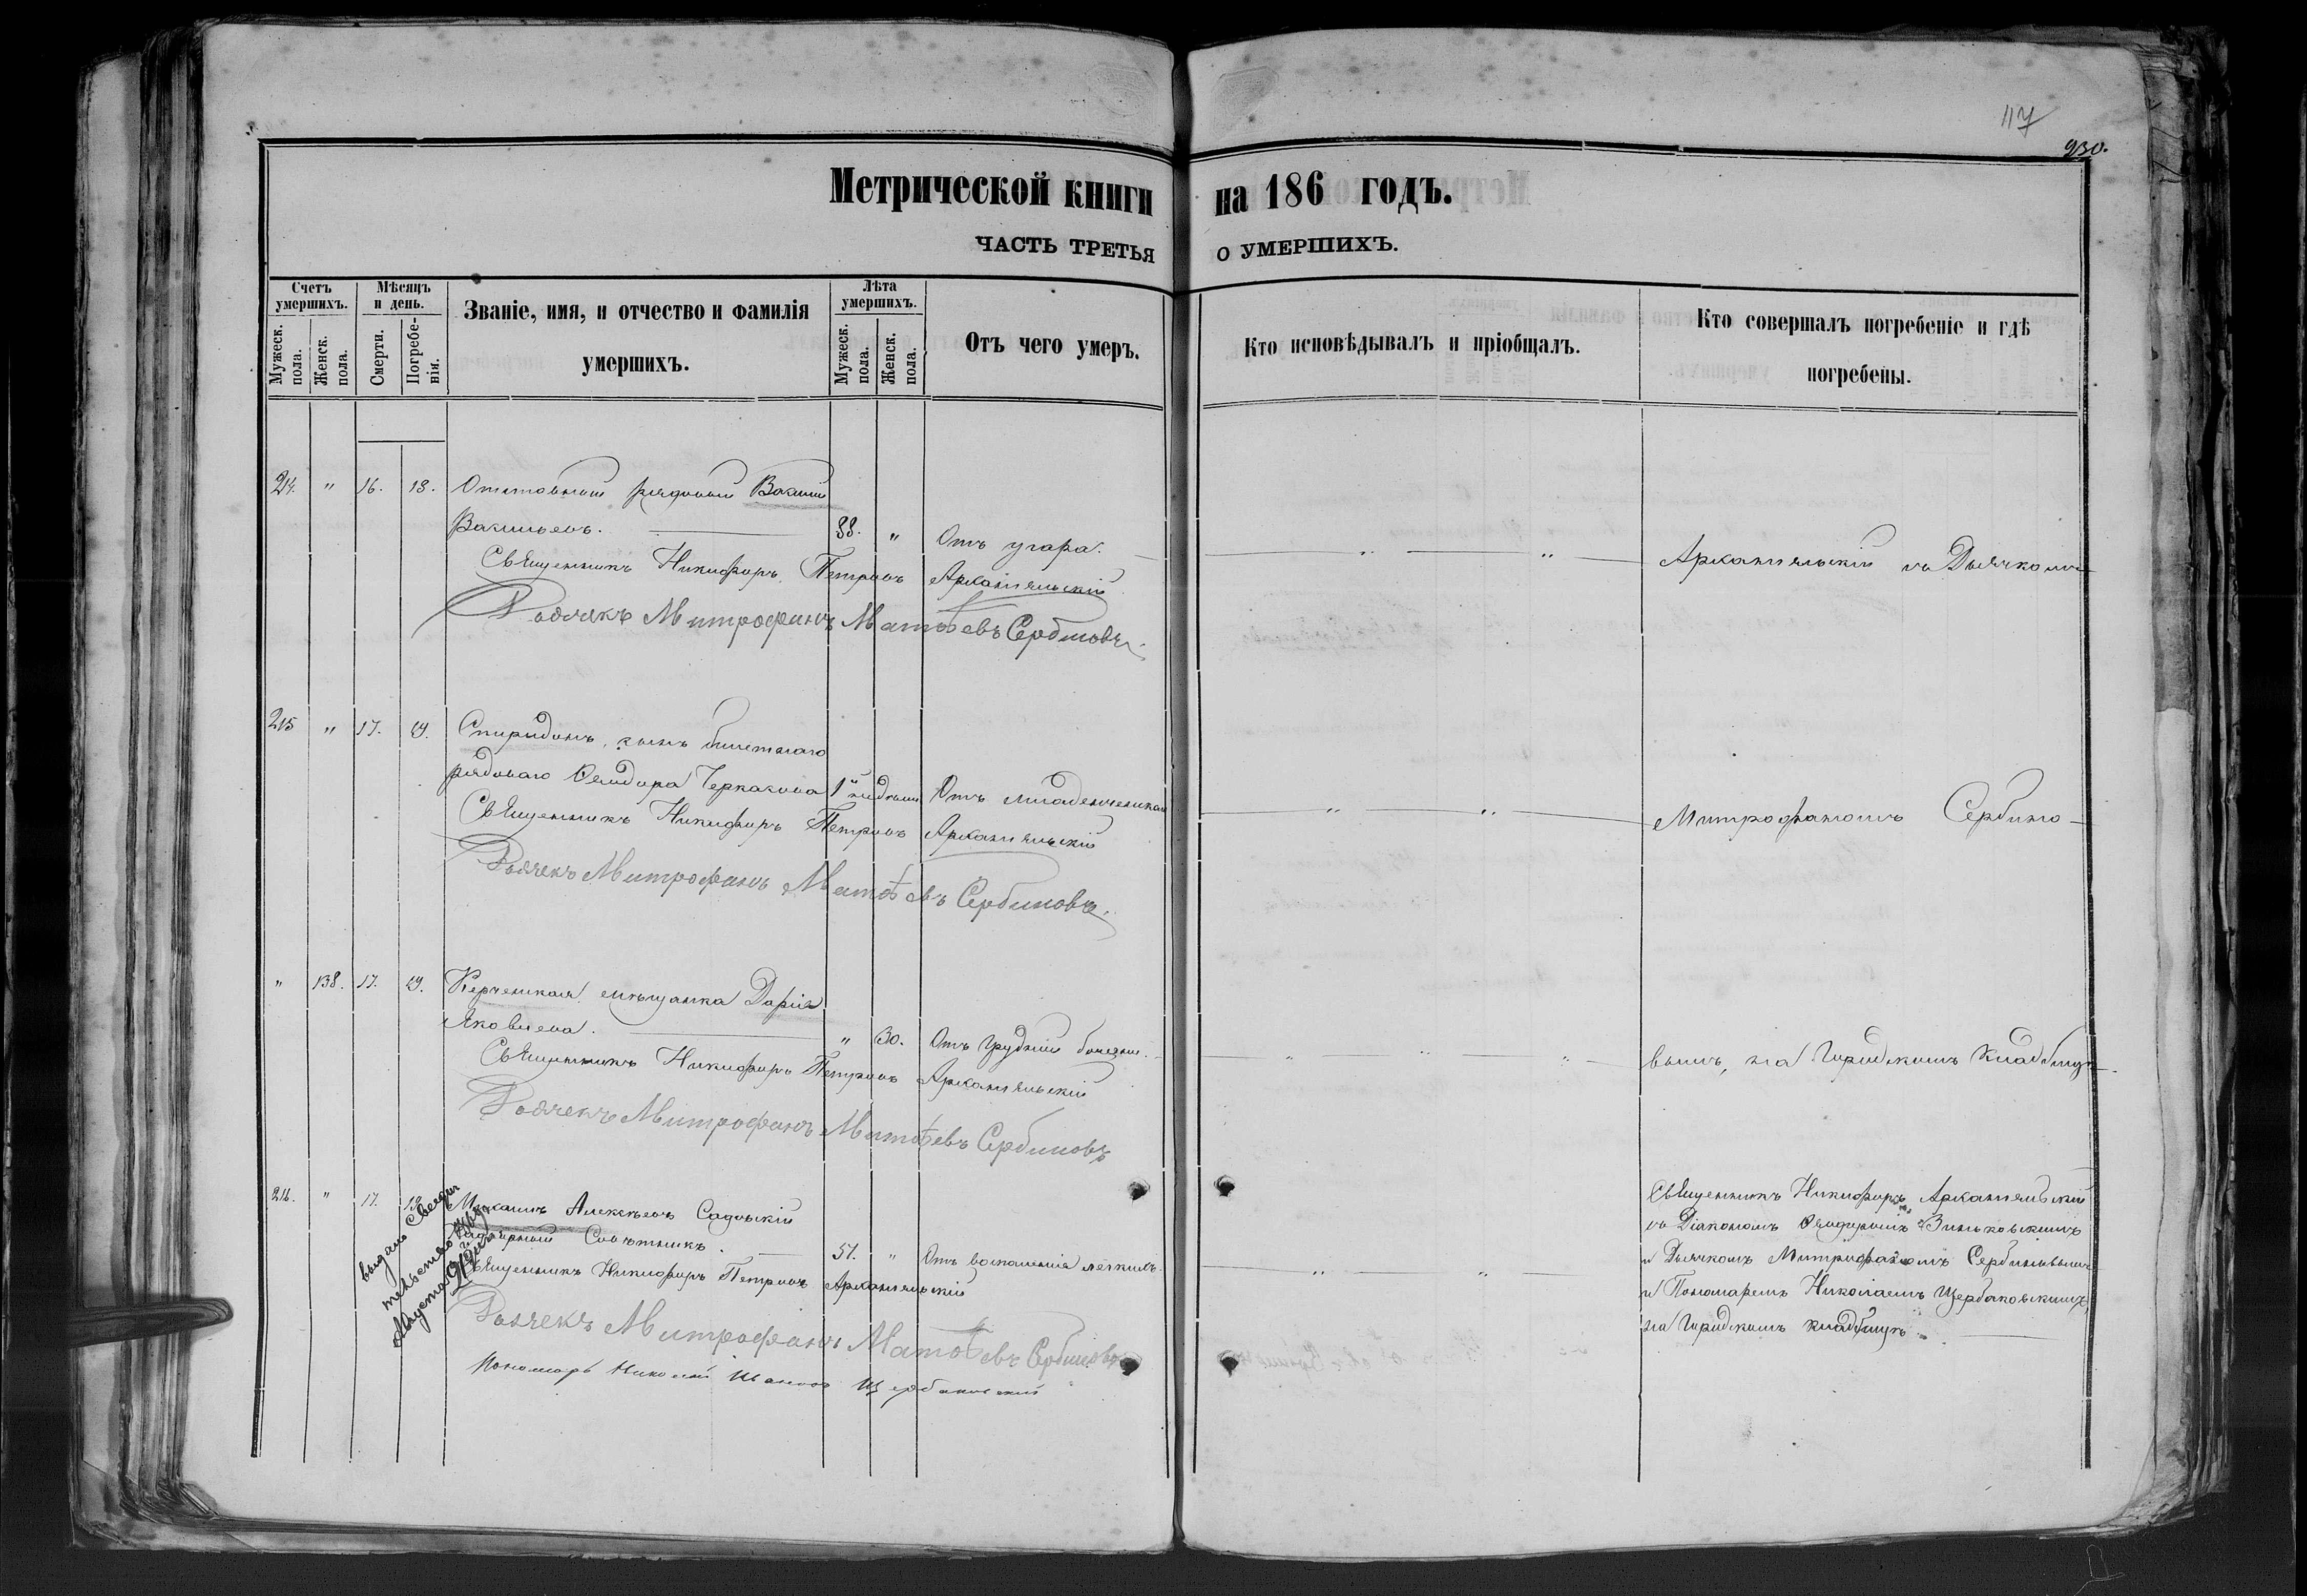 117
930.
Метрической книги на 186 годъ.
ЧАСТЬ ТРЕТЬЯ О УМЕРШИХЪ.
Счетъ умершихъ.
Мужеск. пола.
Женск. пола.
Мѣсяцъ и день.
Смерти.
Погребенія.
Званіе, имя, и отчество и фамилія
умершихъ.
Лѣта умершихъ.
Мужеск. пола.
Женск. пола.
Отъ чего умеръ.
Кто исповѣдывалъ и пріобщалъ.
Кто совершалъ погребеніе и гдѣ
погребены.
214. " 16. 18. Отставный рядовый Василій
Васильевъ. 88. " Отъ угара. " " Архангельскій съ Дьячкомъ
Священникъ Никифоръ Петровъ Архангельскій
Дьячекъ Митрофанъ Матѳеевъ Сербиновъ.
215 " 17. 19. Спиридонъ, сынъ билетнаго
рядоваго Ѳеодора Черкасова 1 Отъ младенческой " " Митрофаномъ Сербино-
Священникъ Никифоръ Петровъ Архангельскій
Дьячекъ Митрофанъ Матѳеевъ Сербиновъ.
" 138. 17. 19. Керченская мѣщанка Дарія
Яковлева. " 30. Отъ грудной болезни. " " " вымъ, на Городскомъ кладбищѣ.
Священникъ Никифоръ Петровъ Архангельскій
Дьячекъ Митрофанъ Матѳеевъ Сербиновъ
216. " 17. 19. Михаилъ Алексѣевъ Садовскій
Совѣтникъ. 51. " Отъ воспаленія легкихъ. " "
Священникъ Никифоръ Петровъ Архангельскій
Дьячекъ Митрофанъ Матѳеевъ Сербиновъ
Пономарь Николай Ивановъ Щербаковскій
выдано свидѣ
тельство
Августа
Священникъ Никифоръ Архангельскій
съ Діакономъ Ѳеодоромъ Зиньковскимъ
и Дьячкомъ Митрофаномъ Сербиновымъ
и Пономаремъ Николаемъ Щербаковскимъ,
на Городскомъ кладбищѣ.